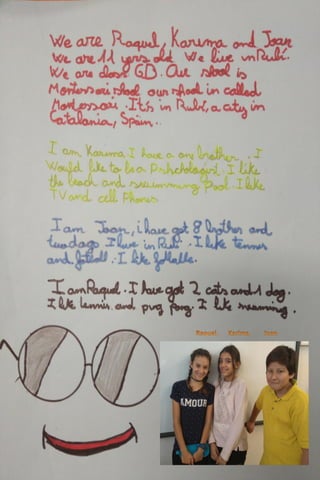 We are Raquel, Karima and Joan
We are 11 years old. We live in Rubí.
We are class 6D. Our shool is
Montessori shool our shool in called
Montessori. It's in Rubí, a city in
Catalonia, Spain..
I am Karima. I have a one brother. I
Would like to be a Pshchologist. I like
the beach and swimming pool. I like
TV and cell Phones
I am Joan, i have got 8 brother and
two dogs I live in Rubí. I like tennis
and fotball. I like fotballs.
I am Raquel. I have got 2 cats and 1 dog.
I like tennis and pug pong. I like swimming.
Raquel Karima Joan
AMOUR